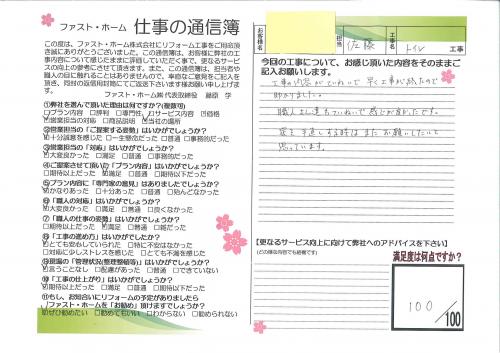 ファスト・ホーム 仕事の通信簿
この度は、ファスト・ホーム株式会社にリフォーム工事をご用命頂き誠にありがとうございました。この通信簿は、お客様に弊社の工事内容について感じたままに評価していただく事で、更なるサービスの向上の参考にさせて頂きます。また、この通信簿は、担当者や職人の目に触れることはありませんので、率直なご意見をご記入を頂き、同封の返信用封筒にてご返送下さいます様お願い申し上げます。
ファスト・ホーム㈱代表取締役 藤原 学
①弊社を選んで頂いた理由は何ですか?(複数可)
□プラン内容 □評判 □専門性 □サービス内容 □価格
□営業担当の対応 □商品説明 □当社の場所
②営業担当の「ご提案する姿勢」はいかがでしょうか?
□十分誠意を感じた □一生懸命だった □普通 □事務的だった
③営業担当の「対応」はいかがでしょうか?
□大変良かった □満足 □普通 □事務的だった
④ご提案させて頂いた「プラン内容」はいかがですか?
□期待以上だった □満足 □普通 □期待以下だった
⑤プラン内容に「専門家の意見」はありましたでしょうか?
□かなりあった □十分あった □普通 □殆どなかった
⑥「職人の対応」はいかがでしょうか?
□大変良かった □満足 □普通 □良くなかった
⑦「職人の仕事の姿勢」はいかがでしょうか?
□期待以上だった □満足 □普通 □雑だった
⑧「工事の進め方」はいかがでしたか?
□とても安心していられた □特に不安はなかった
□対応に少しストレスを感じた □とても不満を感じた
⑨現場の「管理状況(整理整頓等)」はいかがでしょうか?
□言うことなし □配慮があった □普通 □できていない
⑩「工事の仕上がり」はいかがでしょうか?
□期待以上だった □満足 □普通 □期待以下だった
⑪もし、お知合いにリフォームの予定がありましたら
「ファスト・ホーム」を「お勧め」頂けますでしょうか?
□ぜひ勧めたい □勧めてもいい □わからない □勧められない
お客様名 担当 佐藤 工事名 トイレ 工事
今回の工事について、お感じ頂いた内容をそのままご記入お願いします。
工事の内容がていねいで早く工事が終ったので
助かりましたか
職人さん達もていねいで感じが良かったです。
又手直しする時はまたお願いしたいと
思っています。
【更なるサービス向上に向けて弊社へのアドバイスを下さい】
(どの様な内容でも結構です)
満足度は何点ですか?
100/100